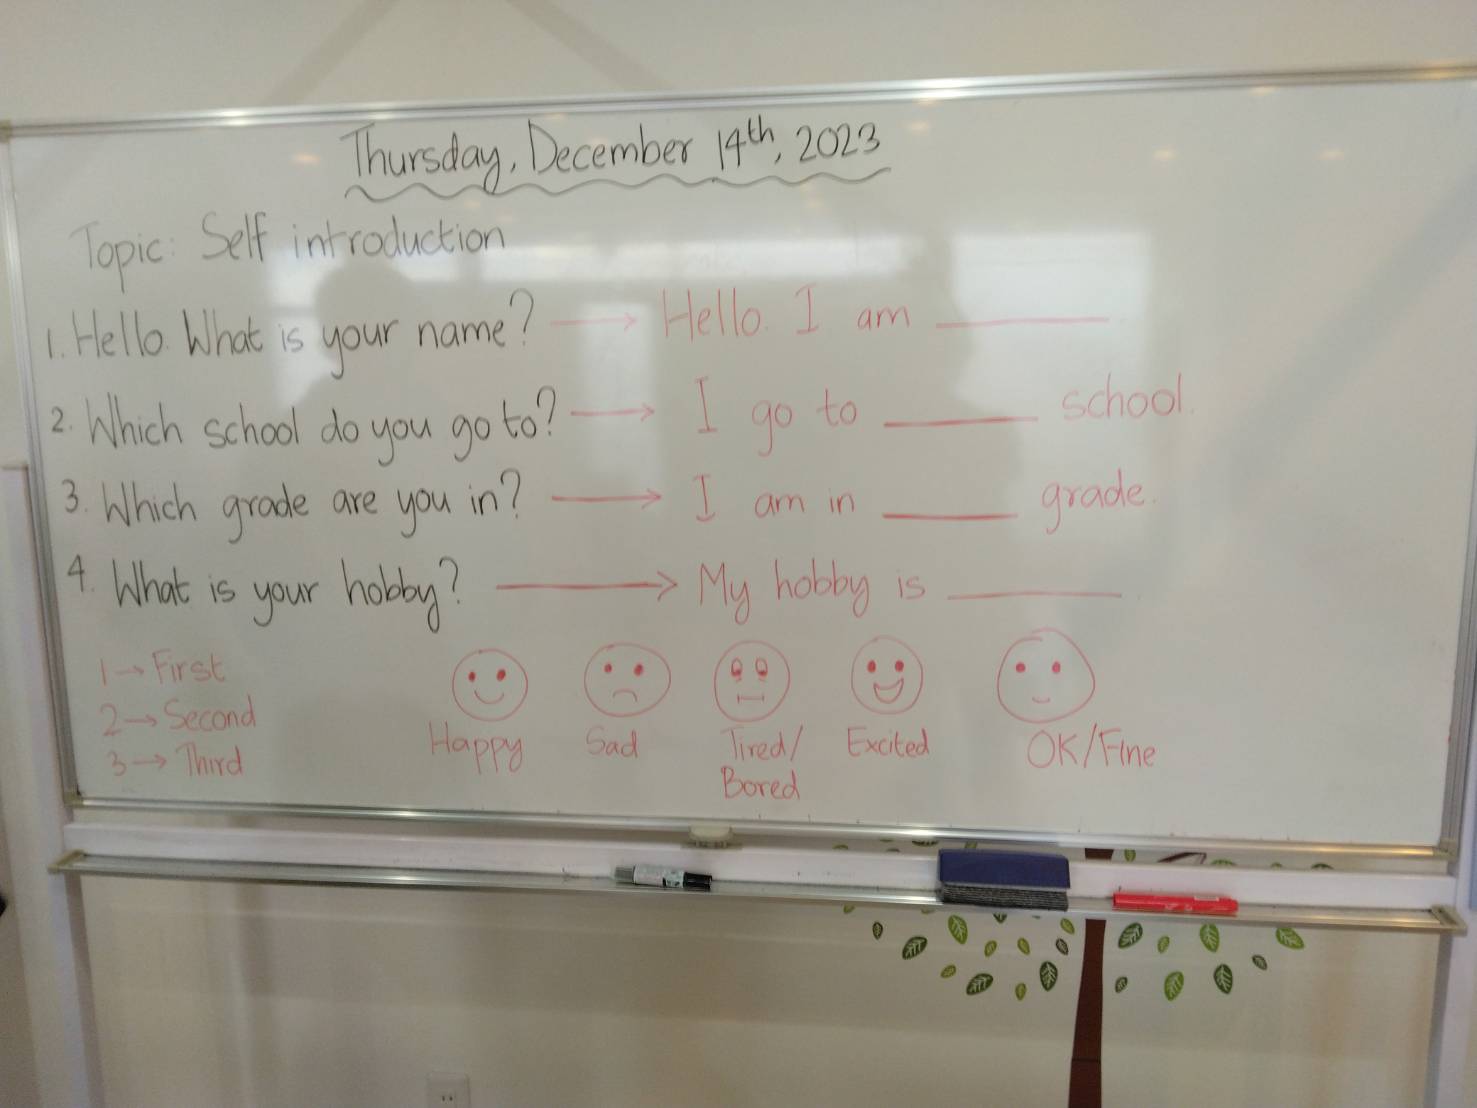 Thursday, December 14th, 2023
Topic: Self introduction
1. Hello. What is your name? → Hello. I am ______
2. Which school do you go to? → I go to ______ school.
3. Which grade are you in? → I am in ______ grade.
4. What is your hobby? → My hobby is ______
1 → First
2 → Second
3 → Third
Happy Sad Tired/ Excited OK/Fine
Bored